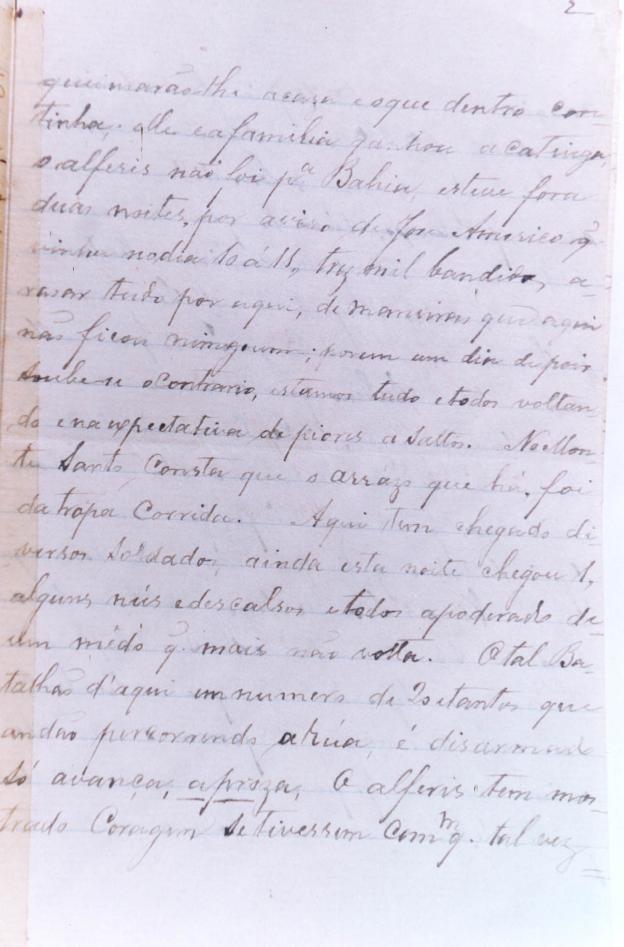 2
queimarão-lhe acaza eoque dentro con-
tinha. elle eafamilia ganhou acatinga,
o alferis não foi pª Bahia, esteve fora
duas noites, por aviso de José Americo q.
vinha nodia 10 á 11, trez mil bandidos, a-
rasar tudo por aqui, de maneiras que aqui
não ficou ninguem; porem um dia depois
soube-se ocontrario, estamos tudo etodos voltan-
do enaexpectativa de piores asaltos. NoMon-
te Santo Consta que o arrazo que há, foi
datropa Corrida. Aqui tem chegado di-
versos Soldados, ainda esta noite chegou 1,
alguns nús edescalsos etodos apoderado de
um mêdo q. mais não volta. O tal Ba-
talhão d'aqui umnumero de 20etantos que
andão percorrendo arúa, é disarmado
só avança, apreza, O alferis tem mos-
trado Coragem setivessem com qm. tal vez